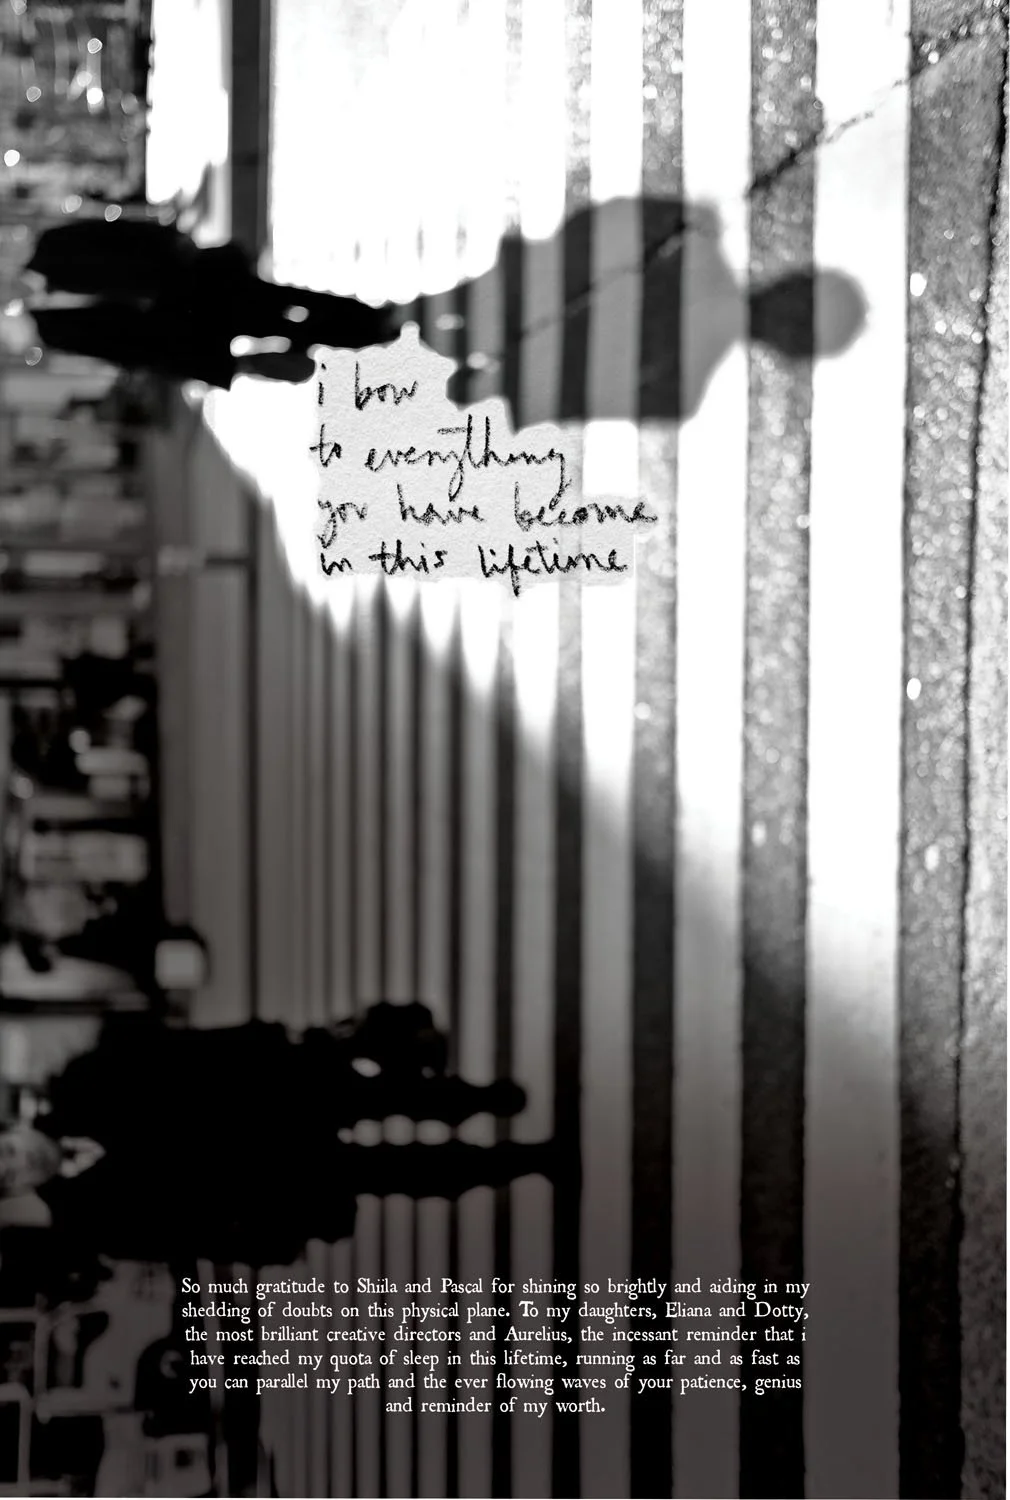 i bow
to everything
you have become
in this lifetime
So much gratitude to Shiila and Pascal for shining so brightly and aiding in my
shedding of doubts on this physical plane. To my daughters, Eliana and Dotty,
the most brilliant creative directors and Aurelius, the incessant reminder that i
have reached my quota of sleep in this lifetime, running as far and as fast as
you can parallel my path and the ever flowing waves of your patience, genius
and reminder of my worth.